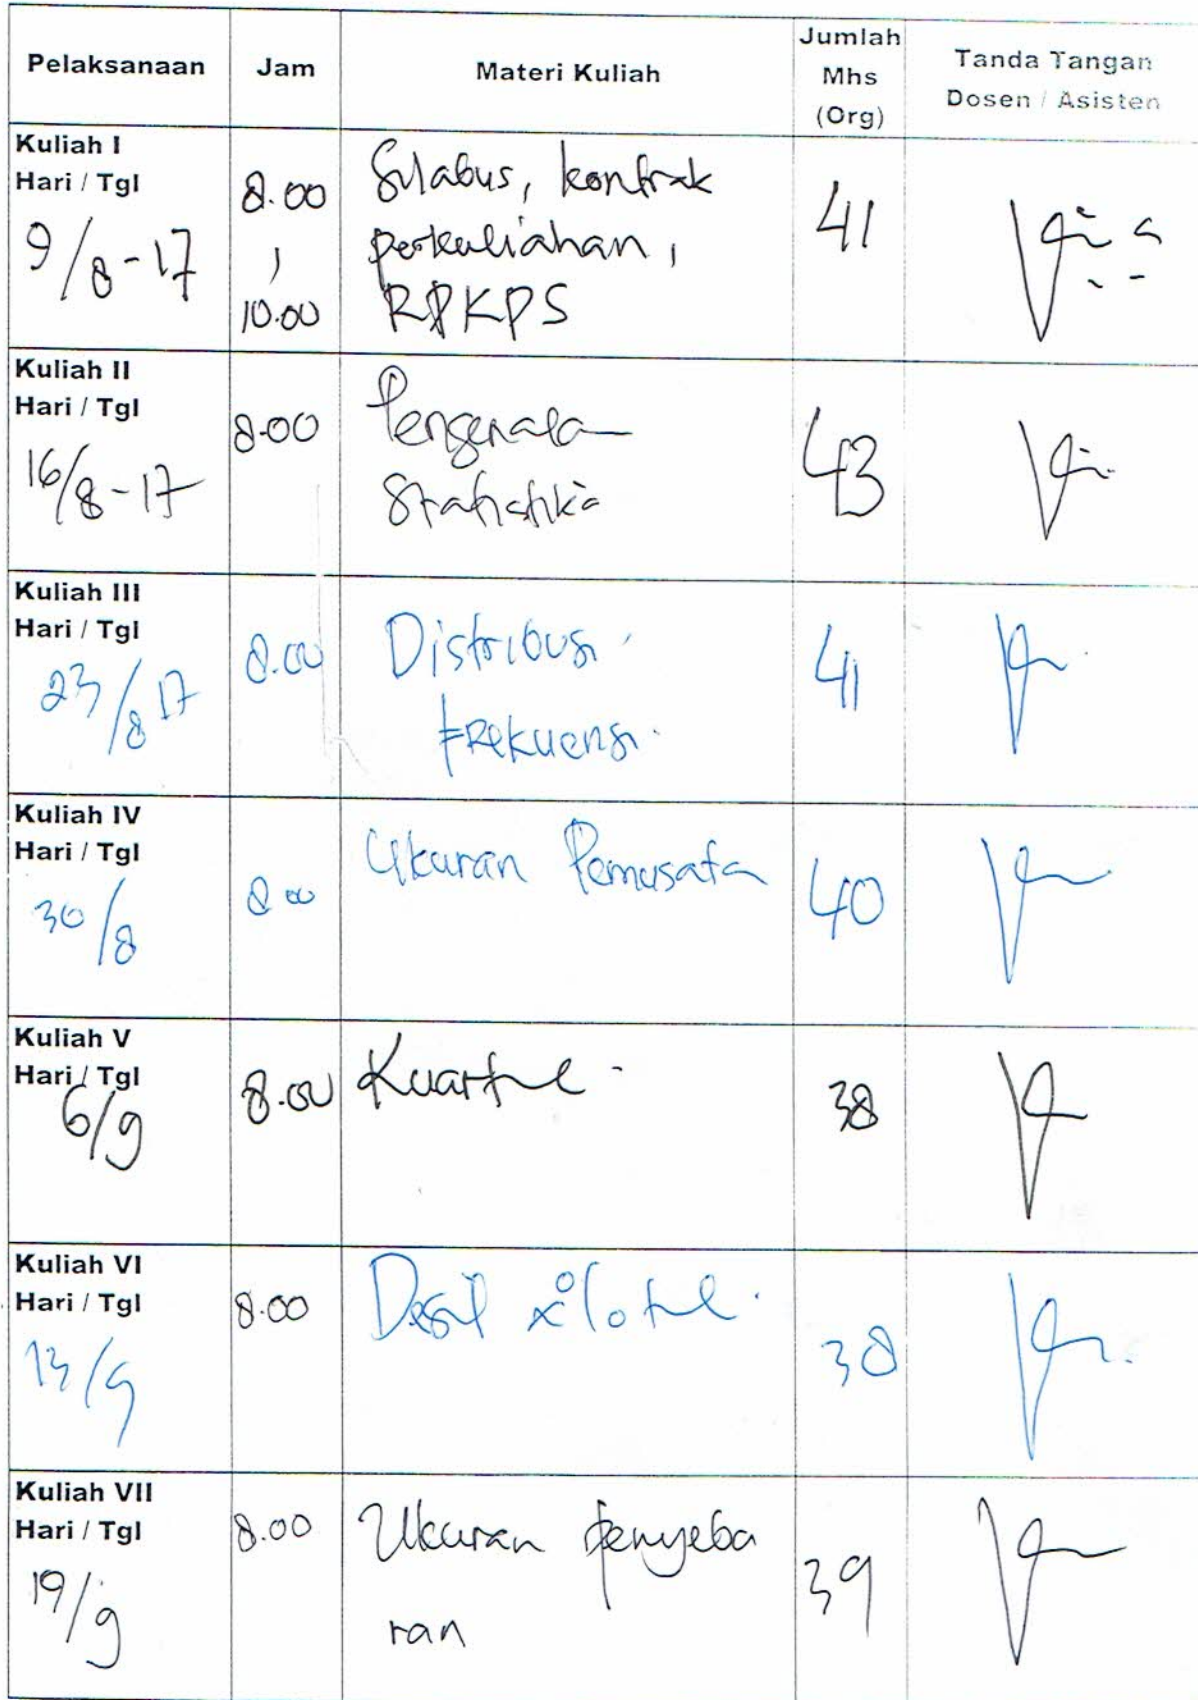 Pelaksanaan Jam Materi Kuliah Jumlah Mhs (Org) Tanda Tangan Dosen / Asisten
Kuliah I
Hari / Tgl
9/8-17
8.00
10.00
Silabus, kontrak
perkuliahan,
RPKPS
41
Kuliah II
Hari / Tgl
16/8-17
8.00
Pengenala
Statistika
43
Kuliah III
Hari / Tgl
23/8 17
8.00
Distribusi
Frekuensi.
41
Kuliah IV
Hari / Tgl
30/8
8 00
Ukuran Pemusata
40
Kuliah V
Hari / Tgl
6/9
8.00
Kuartil
38
Kuliah VI
Hari / Tgl
13/9
8.00
Desil
38
Kuliah VII
Hari / Tgl
19/9
8.00
Ukuran penyeba
ran
39